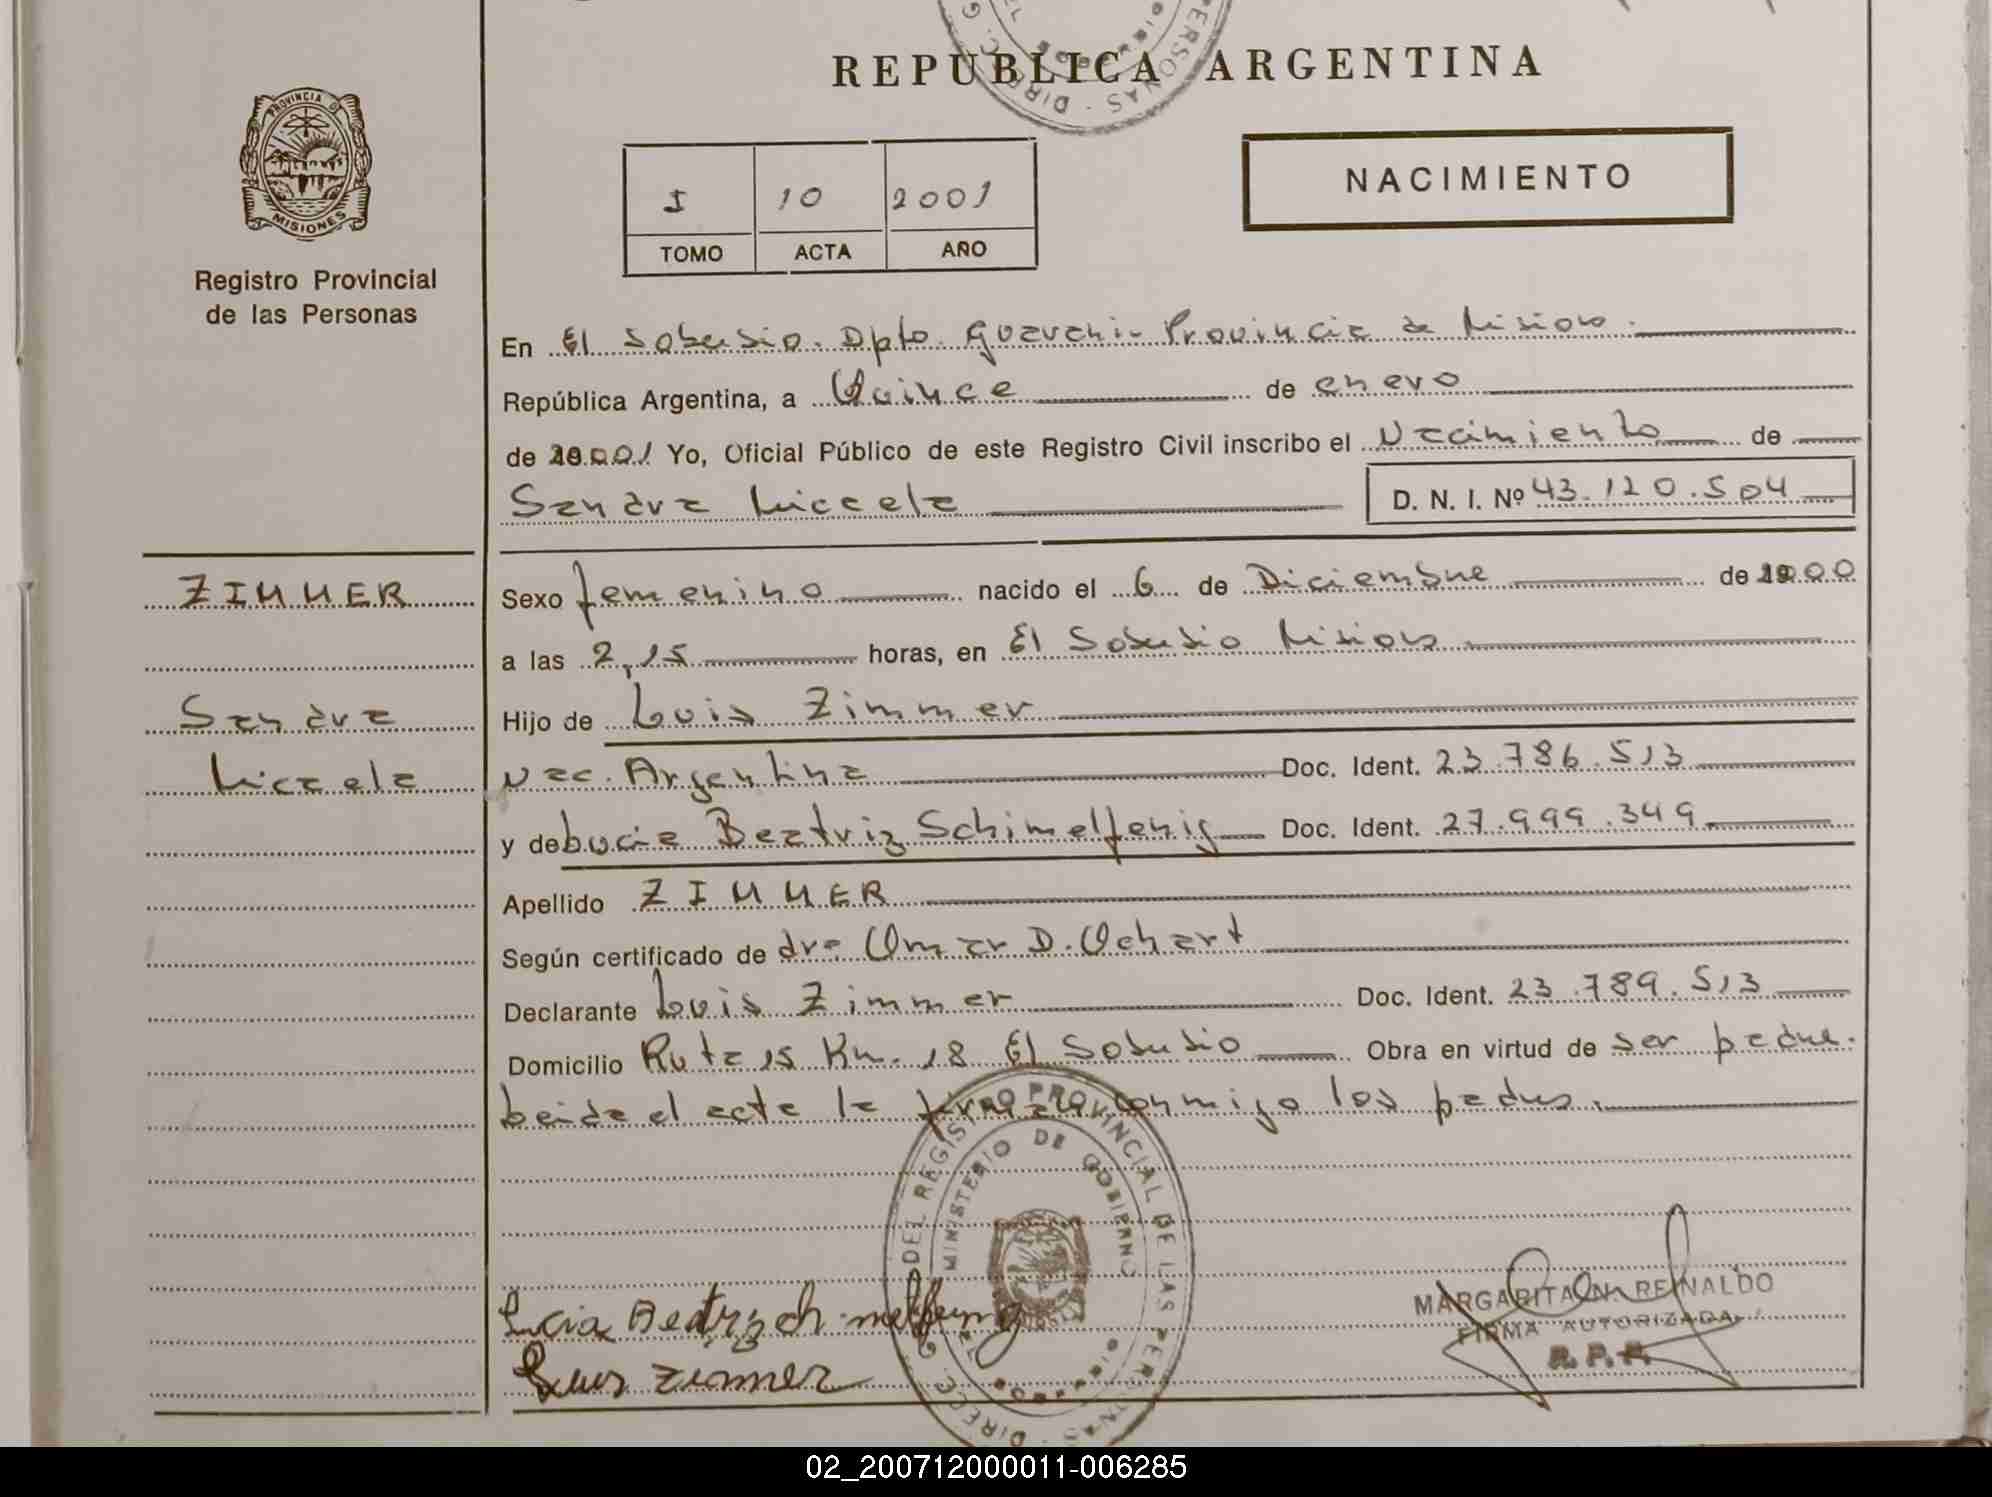 REPUBLICA ARGENTINA
PROVINCIA DE
MISIONES
Registro Provincial
de las Personas
I 10 2001
TOMO ACTA AÑO
NACIMIENTO
En El Soberbio. Dpto. Guarani- Provincia de Misiones.
República Argentina, a Quince de enero
de 2001 Yo, Oficial Público de este Registro Civil inscribo el Nacimiento de
Sandra Micaela D. N. I. Nº 43.120.504
ZIMMER
Sandra
Micaela
Sexo femenino nacido el 6 de Diciembre de 2000
a las 2,15 horas, en El Soberbio Misiones
Hijo de Luis Zimmer
Nac. Argentina Doc. Ident. 23.786.513
y de Lucia Beatriz Schimelfenig Doc. Ident. 27.999.349
Apellido ZIMMER
Según certificado de dr. Omar D. Ochart
Declarante Luis Zimmer Doc. Ident. 23.789.513
Domicilio Ruta 15 Km. 18 El Soberbio Obra en virtud de ser padre.
Leida el acta la firman conmigo los padres.
DIREC. G DEL REGISTRO PROVINCIAL DE LAS PERSONAS
MINISTERIO DE GOBIERNO
Lucia Beatriz
Luis Zimmer
MARGARITA N. REINALDO
FIRMA AUTORIZADA
R. P. P.
02_200712000011-006285